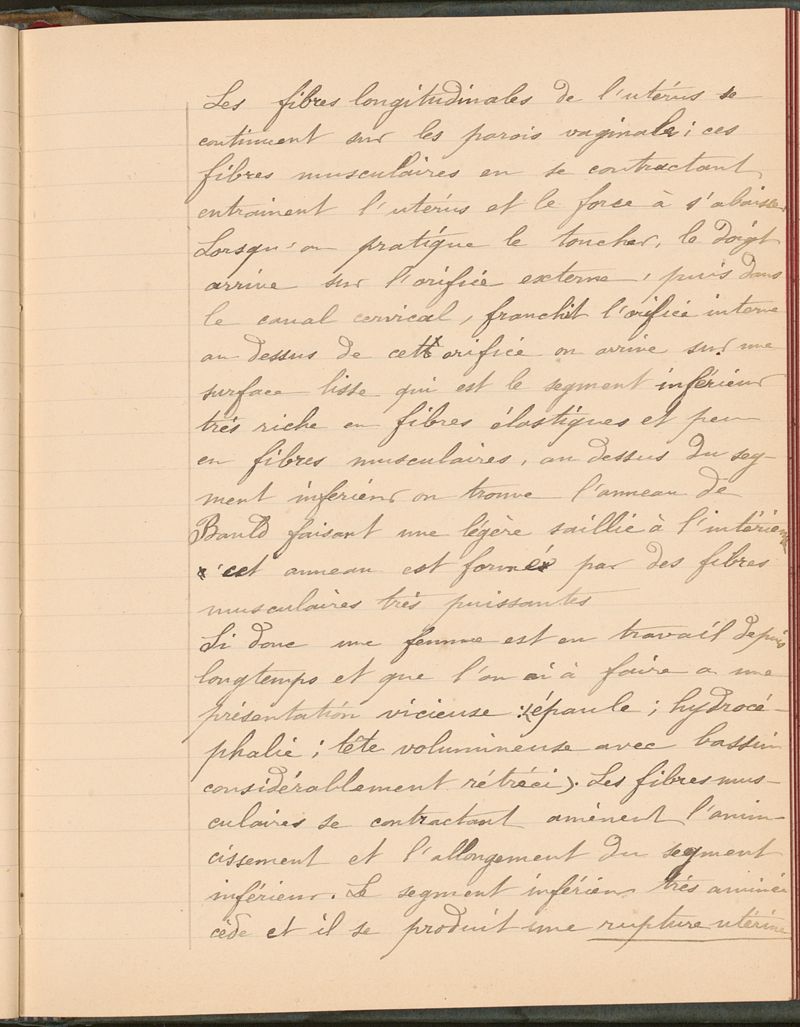 Les fibres longitudinales de l'utérus se
continuent sur les parois vaginales; ces
fibres musculaires en se contractant
entrainent l'utérus et le force à s'abaisser
Lorsqu'on pratique le toucher, le doigt
arrive sur l'orifice externe, puis dans
le canal cervical, franchit l'orifice interne
au dessus de cet orifice on arrive sur une
surface lisse qui est le segment inférieur
très riche en fibres élastiques et peu
en fibres musculaires, au dessus du seg-
ment inférieur on trouve l'anneau de
Bandl faisant une légère saillie à l'intérieur
cet anneau est formé par des fibres
musculaires très puissantes
Si donc une femme est en travail depuis
longtemps et que l'on ai à faire a une
présentation vicieuse (épaule; hydrocé-
phalie; tête volumineuse avec bassin
considérablement rétréci). Les fibres mus-
culaires se contractant amènent l'amin-
cissement et l'allongement du segment
inférieur. Le segment inférieur très amincie
cède et il se produit une rupture utérine